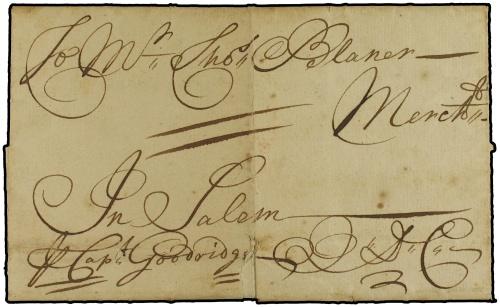 To Mr. Thos. Blaner
Mercht.
In Salem
Capt. Goodridge D. D. C.